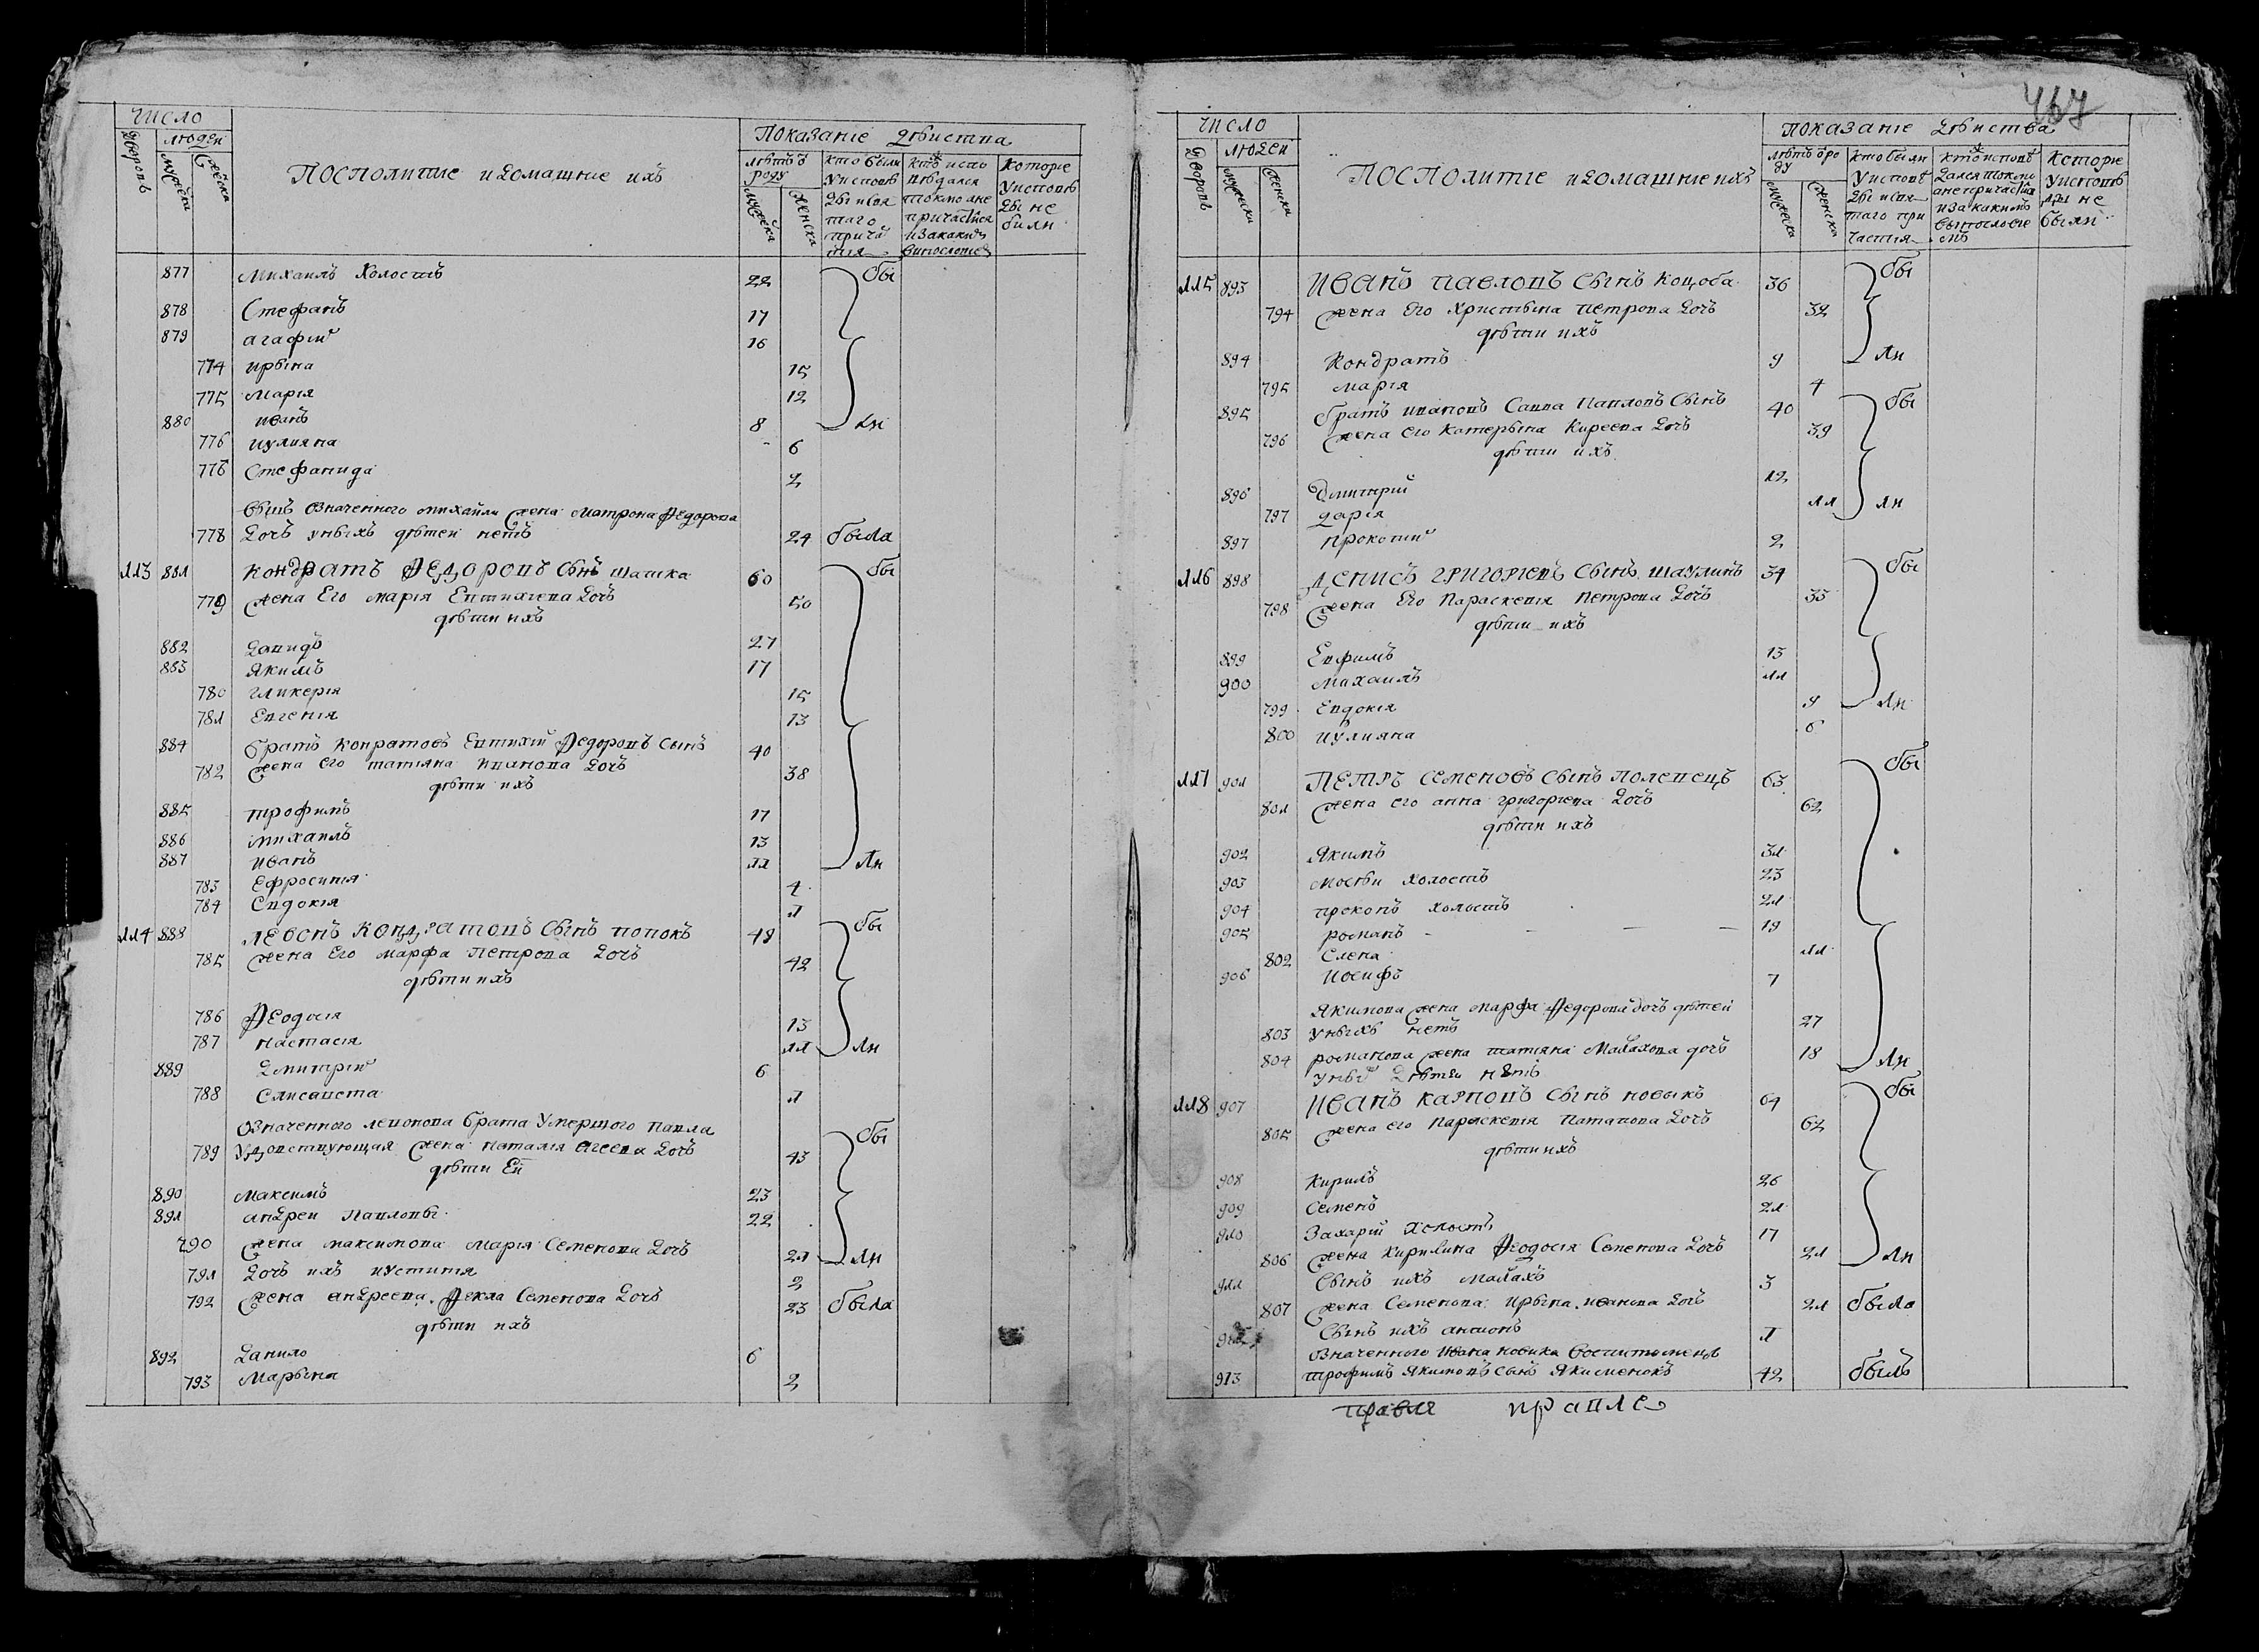 число
людей
дворовъ
мужеска
женска
Посполитіе и домашніе ихъ
Показаніе дѣиства
лѣтъ ѿ роду
мужеска
женска
кто были у исповѣди и святаго
кто исповѣдался токмо а не причастился и за какимъ винословіемъ
которіе у исповѣди не были
877 Михаилъ холостъ 22 бы
878 Стефанъ 17
879 агафій 16
774 ирына 15
775 Марія 12
880 иванъ 8 ли
776 иулияна 6
776 Стефанида 2
означенного михайли жена матрона Федорова
778 дочъ у ныхъ дѣтей нетъ 24 была
113 881 Кондратъ Федоровъ сынъ шашка 60 бы
779 жена Его марія Евтихиева дочъ 50
дѣти ихъ
882 давидъ 27
883 якимъ 17
780 гликерія 15
781 Евгенія 13
884 братъ конратовъ Евтихій Федоровъ сынъ 40
782 жена его татіяна иванова дочъ 38
дѣти ихъ
885 трофимъ 17
886 михаилъ 13
887 иванъ 11 ли
783 Ефросинія 4
784 Евдокія 1
114 888 Левонъ Кондратовъ сынъ попокъ 49 бы
785 жена Его марфа Петрова дочъ 42
дѣти ихъ
786 Феодосія 13
787 настасія 11 ли
889 дмитрій 6
788 Елисавета 1
означенного левонова брата умершого павла
789 удовствующая жена наталія агеева дочъ 43 бы
дѣти Ей
890 Максимъ 23
891 андреи Павловы 22
790 жена максимова марія Семенова дочъ 21 ли
791 дочъ ихъ иустинія 2
792 жена андреева Фекла Семенова дочъ 23 была
дѣти ихъ
892 данило 6
793 Марына 2
467
число
людей
дворовъ
мужеска
женска
Посполитіе и домашніе ихъ
Показаніе дѣиства
лѣтъ ѿ роду
мужеска
женска
кто были у исповѣди и святаго причастія
кто исповѣдался токмо а не причастился и за какимъ винословіемъ
которіе у исповѣди не были
115 893 Иванъ Павловъ сынъ Коцюба 36 бы
794 жена его Христына петрова дочъ 32
дѣти ихъ
894 Кондратъ 9 ли
795 марія 4
895 братъ ивановъ Савва Павловъ сынъ 40 бы
796 жена его катерына Киреева дочъ 39
дѣти ихъ
896 дмитрій 12
797 дарія 11 ли
897 прокопій 2
116 898 Денисъ Григориевъ сынъ шаулинъ 34 бы
798 жена Его Параскевія Петрова дочъ 33
дѣти ихъ
899 Евфимъ 13
900 михаилъ 11
799 Евдокія 9 ли
800 иулияна 6
117 901 Петръ Семеновъ сынъ Полевецъ 63 бы
801 жена его анна григориева дочъ 62
дѣти ихъ
902 якимъ 31
903 мосѣи холостъ 23
904 прокопъ холостъ 21
905 романъ 19
802 Елена 11
906 иосифъ 7
якимова жена марфа Федорова дочъ дѣтей
803 у ныхъ нетъ 27
804 романова жена татіяна Малахова дочъ 18 ли
у ныхъ дѣтей нѣтъ
118 907 Иванъ Карповъ сынъ новыкъ 64 бы
805 жена его Параскевія Потапова дочъ 62
дѣти ихъ
908 Кирилъ 26
909 Семенъ 21
910 Захарій холостъ 17
806 жена Кирилина Феодосія Семенова дочъ 21 ли
911 сынъ ихъ малахъ 3
807 жена Семенова ирына иванова дочъ 21 была
912 сынъ ихъ антонъ 1
означенного ивана новика
913 трофимъ якимовъ сынъ якименокъ 42 былъ
правле